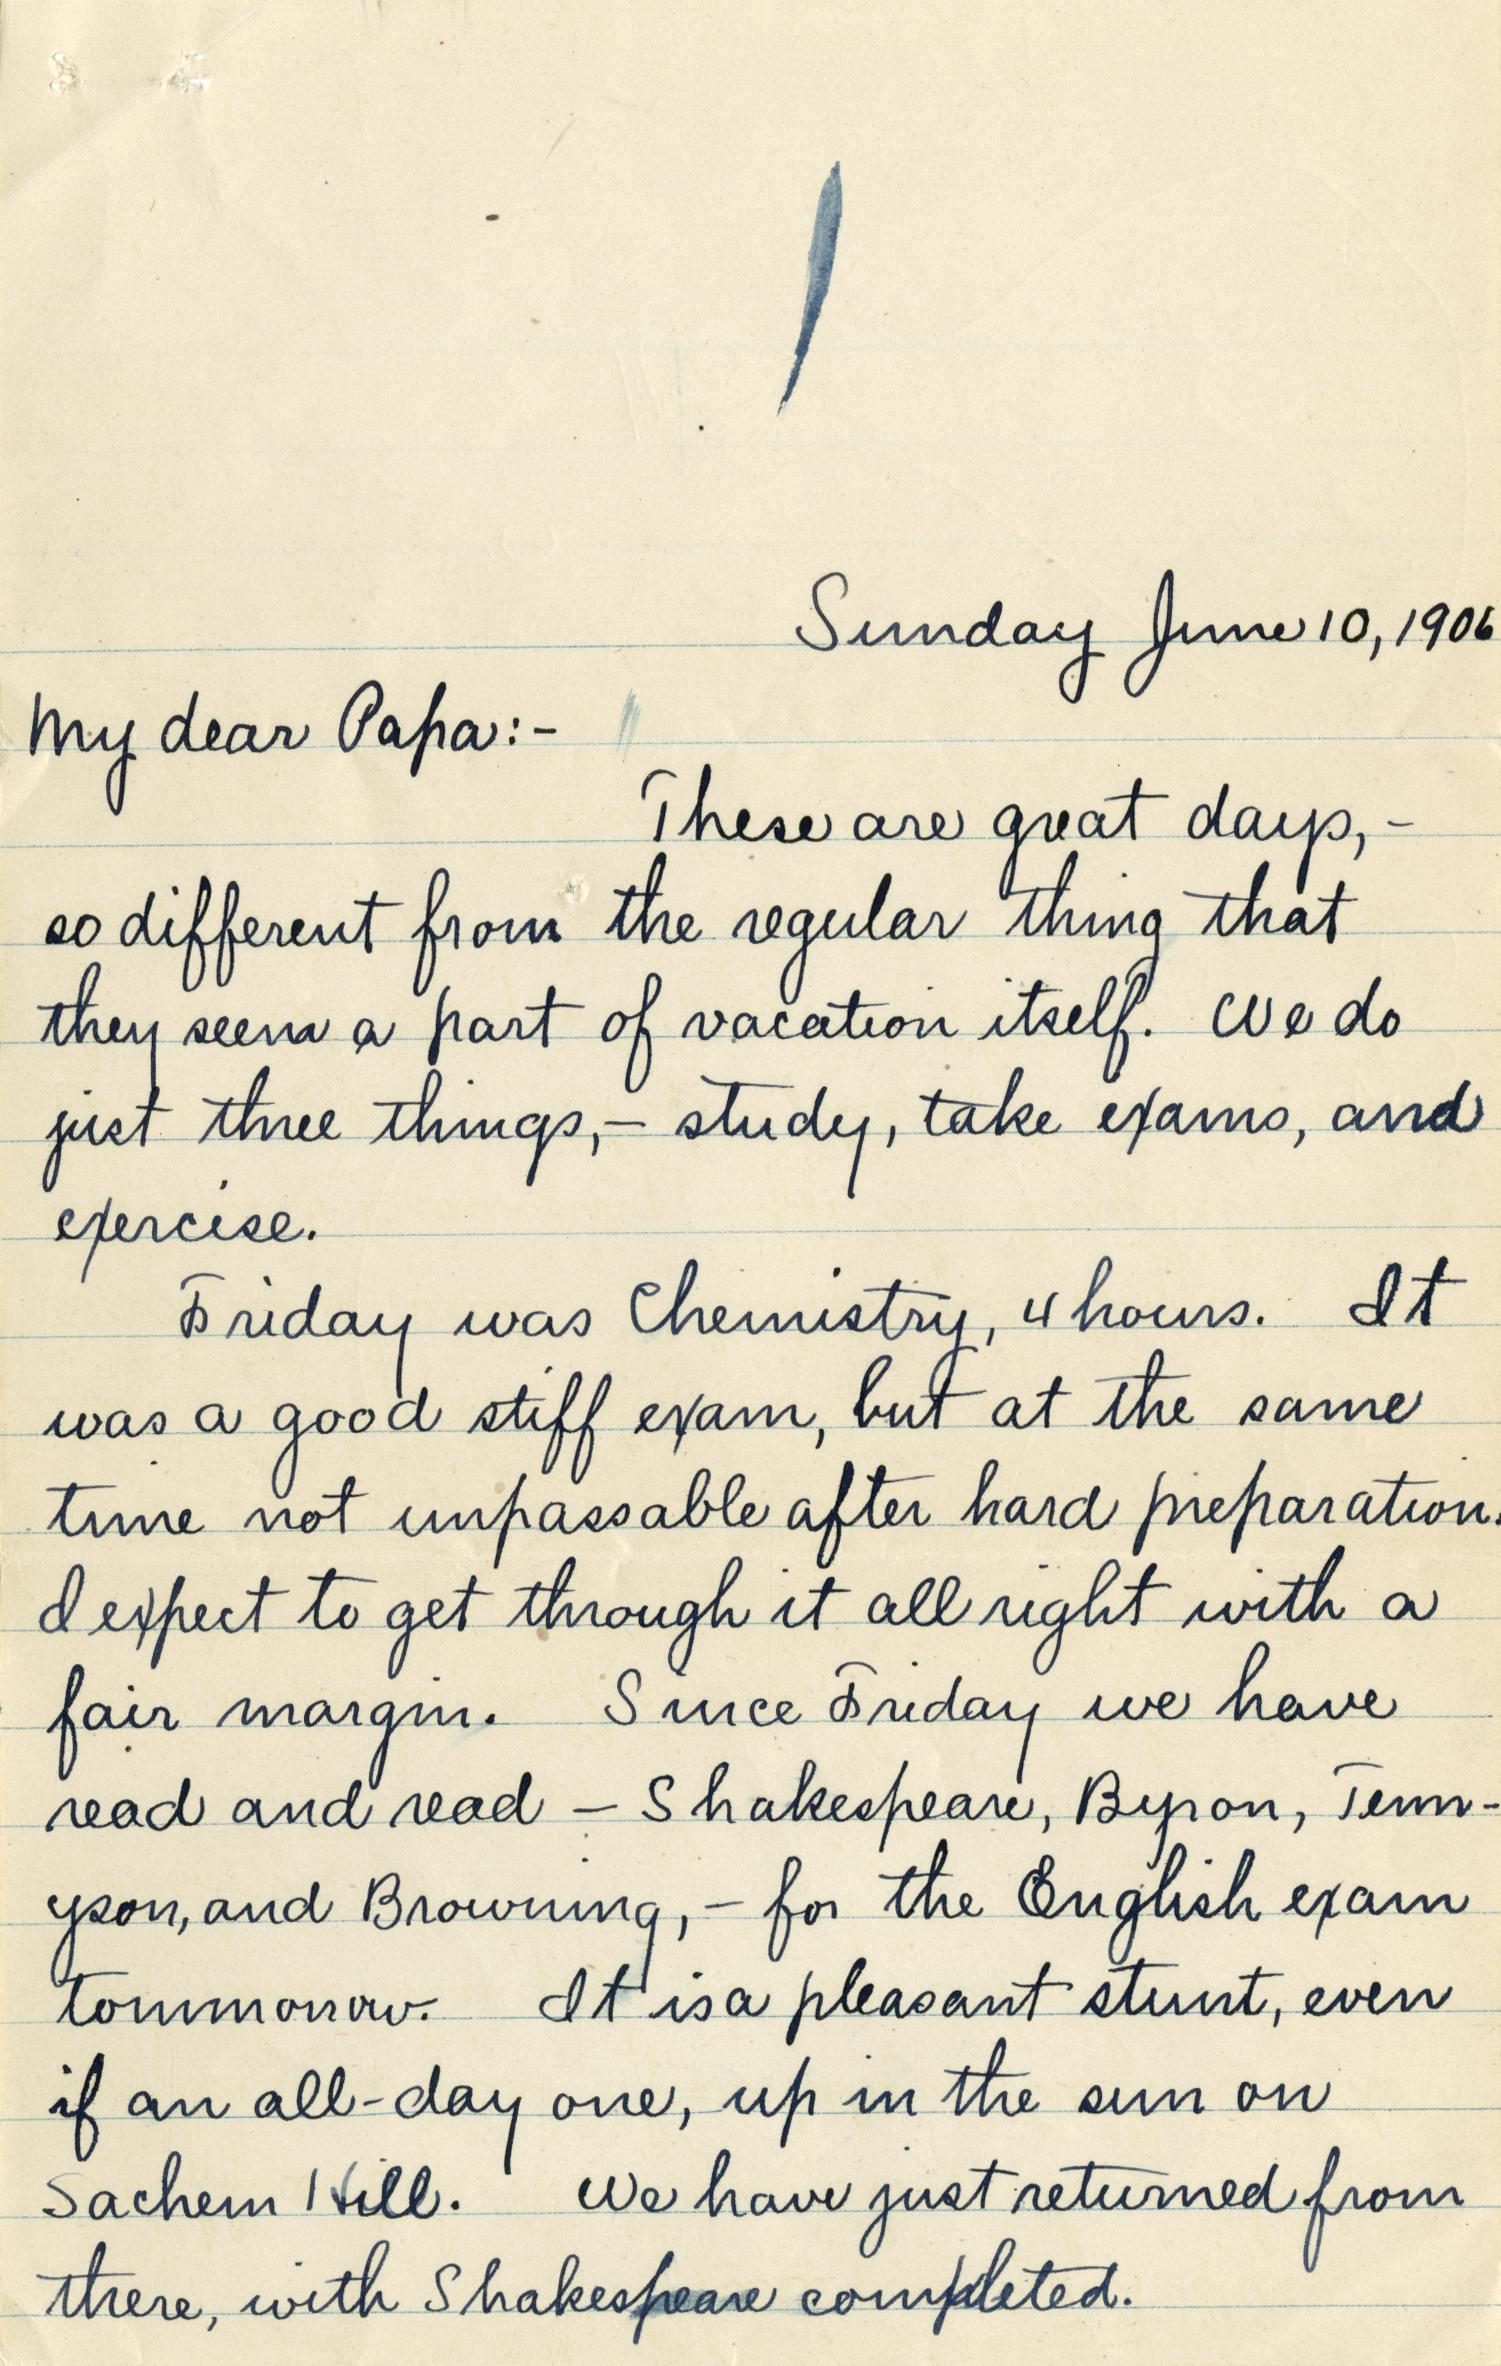 Sunday June 10, 1906
My dear Papa:-
These are great days,-
so different from the regular thing that
they seem a part of vacation itself. We do
just three things,- study, take exams, and
exercise.
Friday was Chemistry, 4 hours. It
was a good stiff exam, but at the same
time not unpassable after hard preparation.
I expect to get through it all right with a
fair margin. Since Friday we have
read and read - Shakespeare, Byron, Tenn-
yson, and Browning,- for the English exam
tommorrow. It is a pleasant stunt, even
if an all-day one, up in the sun on
Sachem Hill. We have just returned from
there, with Shakespeare completed.